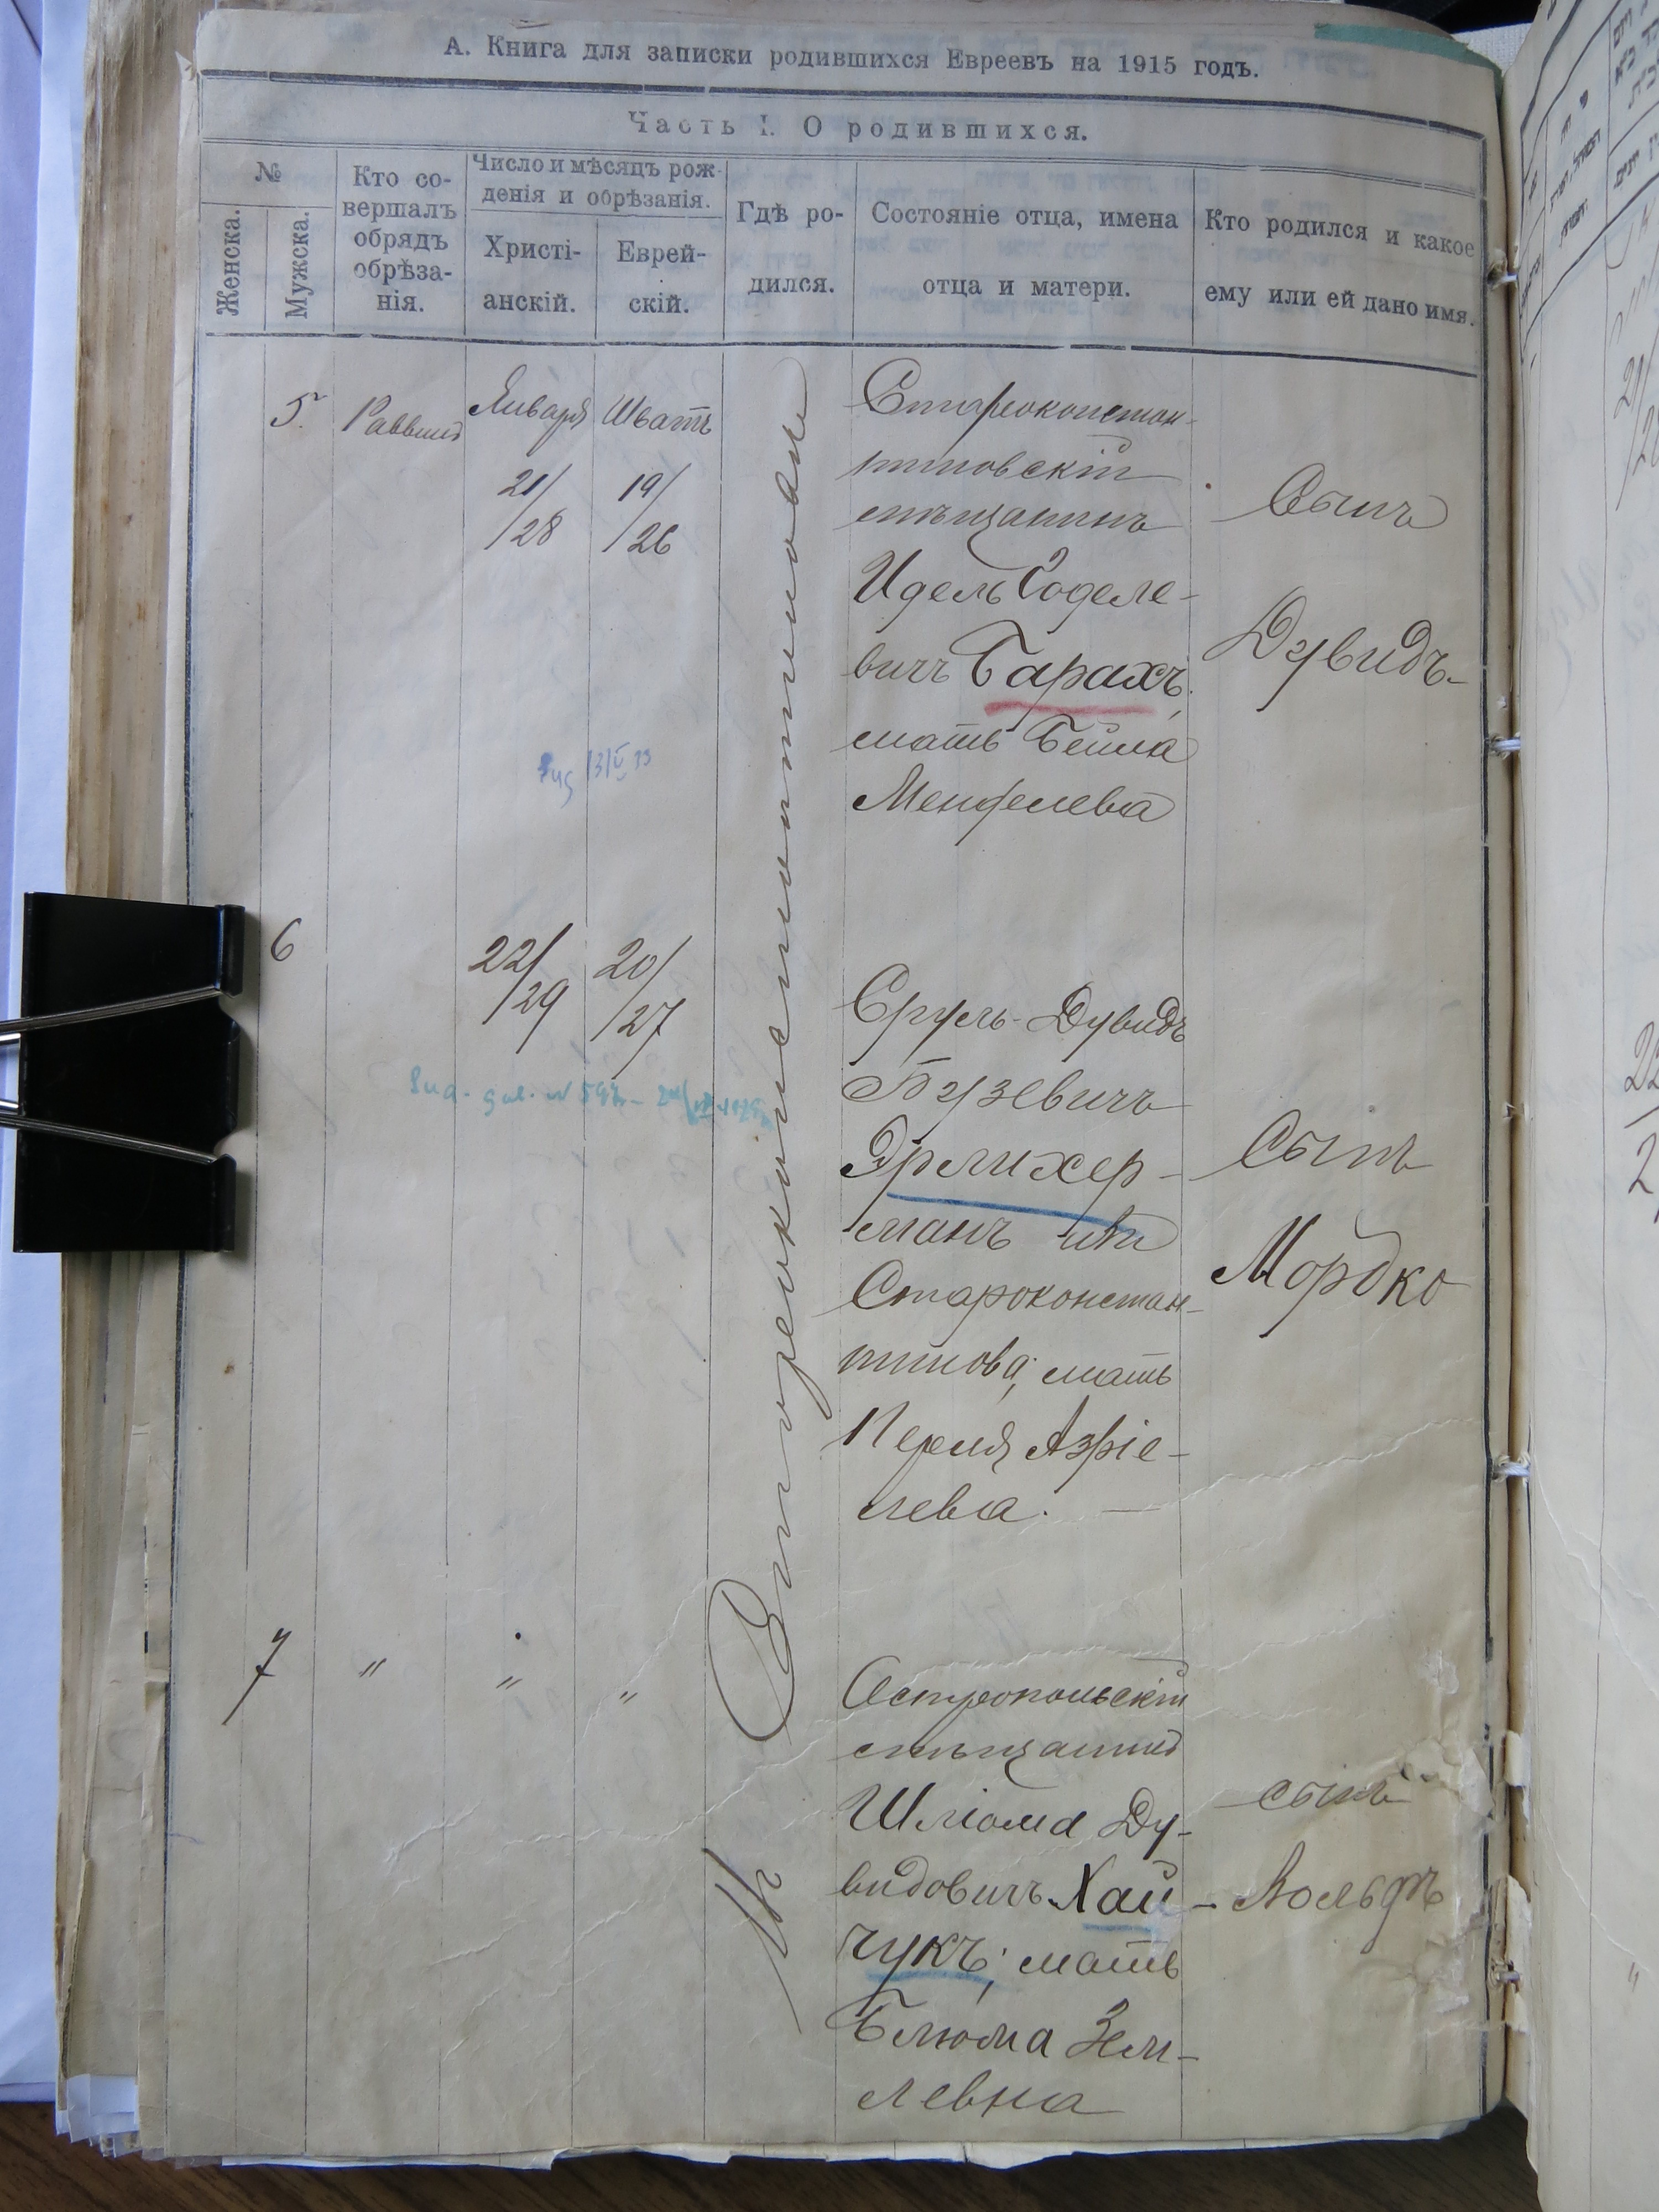 А. Книга для записки родившихся Евреевъ на 1915 годъ.
Часть I. О родившихся.
№
Женска.
Мужска.
Кто со-
вершалъ
обрядъ
обрѣза-
нія.
Число и мѣсяцъ рож-
денія и обрѣзанія.
Христі-
анскій.
Еврей-
скій.
Гдѣ ро-
дился.
Состояніе отца, имена
отца и матери.
Кто родился и какое
ему или ей дано имя.
Въ Староконстантиновѣ
5.
Раввинъ
Января
21/
/28
Шватъ
19/
/26
Староконстан-
тиновскій
мѣщанинъ
Идель
вичъ Барахъ,
мать Бейла
Менделева
Сынъ
Дувидъ
6
22/
/29
20/
/27
Сруль-Дувидъ
Бузевичъ
Эрлихер-
манъ изъ
Староконстан-
тинова, мать
Перля Азріе-
лева.
Сынъ
Мордко
7
"
"
"
Остропольскій
мѣщанинъ
Шліома Ду-
видовичъ Хай-
чукъ; мать
Блюма Зей-
левна
сынъ
Вольфъ